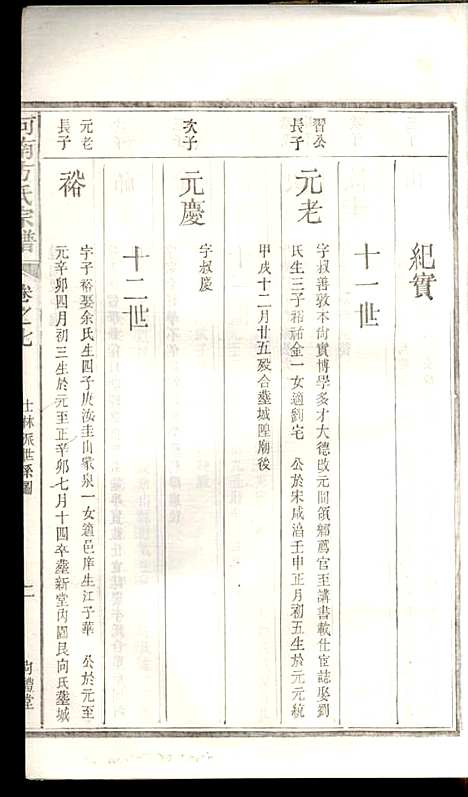 紀實
十一世
習公
長子
元老
字叔善敦本尚實博學多才大德改元間領鄉薦官至講書載仕宦誌娶劉
氏生三子裕祐金一女適劉宅 公於宋咸淳壬申正月初五生於元元統
甲戌十二月廿五歿合塟城隍廟後
次子
元慶
字叔慶
十二世
元老
長子
裕
字子裕娶余氏生四子庚汝圭山歙泉一女適邑庠生江子華 公於元至
元辛卯四月初三生於元至正辛卯七月十四卒塟新堂內園艮向氏塟城
河南方氏宗譜
卷之七
士林派世系圖
二